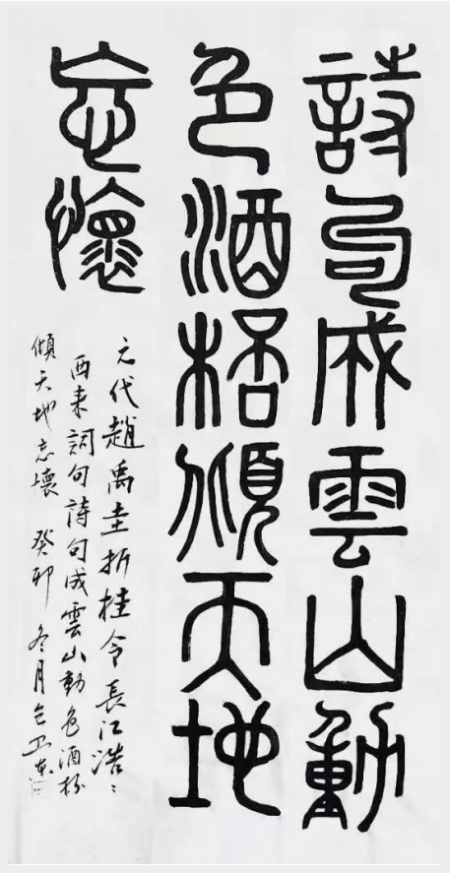 詩句成雲山動
色酒桮傾天地
忘懷
元代趙禹圭折桂令長江浩〻
西来詞句詩句成雲山動色酒杯
傾天地忘懷 癸卯冬月